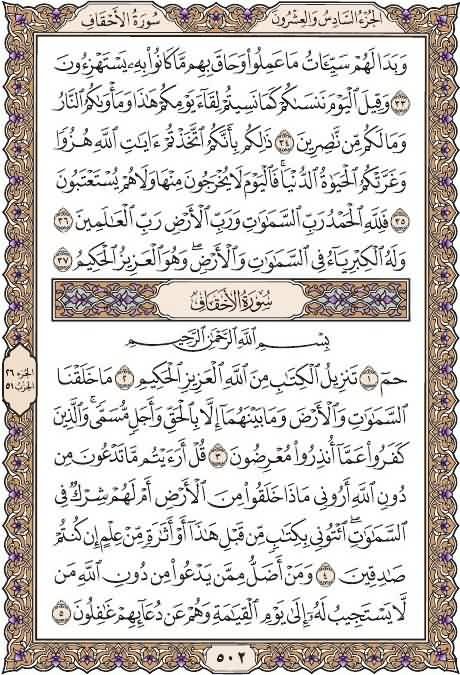 الجُزءُ السَّادِسُ وَالعِشرُونَ
سُورَةُ الأَحْقَافِ
وَبَدَا لَهُمْ سَيِّئَاتُ مَا عَمِلُوا وَحَاقَ بِهِم مَّا كَانُوا بِهِ يَسْتَهْزِءُونَ
٣٣ وَقِيلَ الْيَوْمَ نَنسَىٰكُمْ كَمَا نَسِيتُمْ لِقَاءَ يَوْمِكُمْ هَٰذَا وَمَأْوَىٰكُمُ النَّارُ
وَمَا لَكُم مِّن نَّاصِرِينَ ٣٤ ذَٰلِكُم بِأَنَّكُمُ اتَّخَذْتُمْ ءَايَاتِ اللَّهِ هُزُوًا
وَغَرَّتْكُمُ الْحَيَوٰةُ الدُّنْيَا ۚ فَالْيَوْمَ لَا يُخْرَجُونَ مِنْهَا وَلَا هُمْ يُسْتَعْتَبُونَ
٣٥ فَلِلَّهِ الْحَمْدُ رَبِّ السَّمَٰوَٰتِ وَرَبِّ الْأَرْضِ رَبِّ الْعَالَمِينَ ٣٦
وَلَهُ الْكِبْرِيَاءُ فِي السَّمَٰوَٰتِ وَالْأَرْضِ ۖ وَهُوَ الْعَزِيزُ الْحَكِيمُ ٣٧
سُورَةُ الأَحْقَافِ
بِسْمِ اللَّهِ الرَّحْمَٰنِ الرَّحِيمِ
حمٓ ١ تَنزِيلُ الْكِتَابِ مِنَ اللَّهِ الْعَزِيزِ الْحَكِيمِ ٢ مَا خَلَقْنَا
السَّمَٰوَٰتِ وَالْأَرْضَ وَمَا بَيْنَهُمَا إِلَّا بِالْحَقِّ وَأَجَلٍ مُّسَمًّى ۚ وَالَّذِينَ
كَفَرُوا عَمَّا أُنذِرُوا مُعْرِضُونَ ٣ قُلْ أَرَءَيْتُم مَّا تَدْعُونَ مِن
دُونِ اللَّهِ أَرُونِي مَاذَا خَلَقُوا مِنَ الْأَرْضِ أَمْ لَهُمْ شِرْكٌ فِي
السَّمَٰوَٰتِ ۖ ائْتُونِي بِكِتَابٍ مِّن قَبْلِ هَٰذَا أَوْ أَثَارَةٍ مِّنْ عِلْمٍ إِن كُنتُمْ
صَادِقِينَ ٤ وَمَنْ أَضَلُّ مِمَّن يَدْعُوا مِن دُونِ اللَّهِ مَن
لَّا يَسْتَجِيبُ لَهُ إِلَىٰ يَوْمِ الْقِيَامَةِ وَهُمْ عَن دُعَائِهِمْ غَافِلُونَ ٥
الجزء ٢٦
الحزب ٥١
٥٠٢